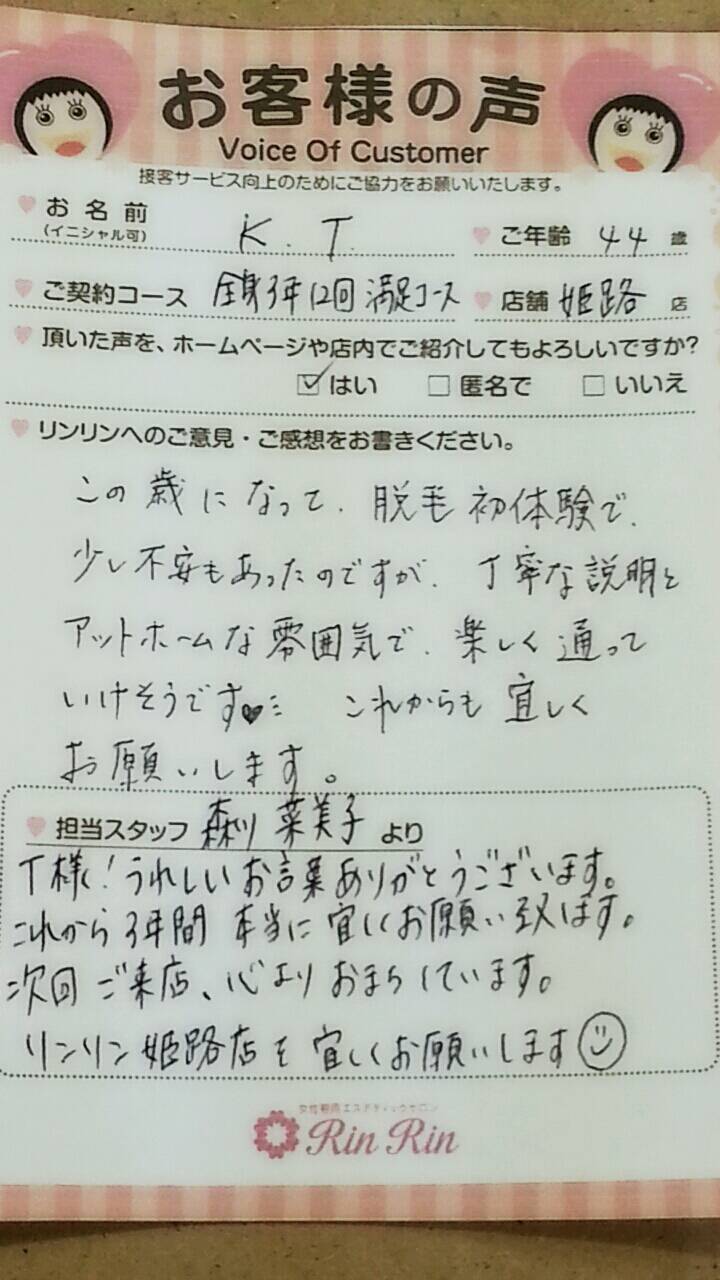 お客様の声
Voice Of Customer
接客サービス向上のためにご協力をお願いいたします。
お名前 K. T. ご年齢 44 歳
(イニシャル可)
ご契約コース 全身3年12回 満足コース 店舗 姫路 店
頂いた声を、ホームページや店内でご紹介してもよろしいですか?
☑はい □匿名で □いいえ
リンリンへのご意見・ご感想をお書きください。
この歳になって、脱毛初体験で、
少し不安もあったのですが、丁寧な説明と
アットホームな雰囲気で、楽しく通って
いけそうです♥ これからも宜しく
お願いします。
担当スタッフ 森川 菜美子 より
T様!うれしいお言葉ありがとうございます。
これから3年間 本当に宜しくお願い致します。
次回ご来店、心よりおまちしています。
リンリン姫路店を宜しくお願いします☺
女性専用エステティックサロン
Rin Rin